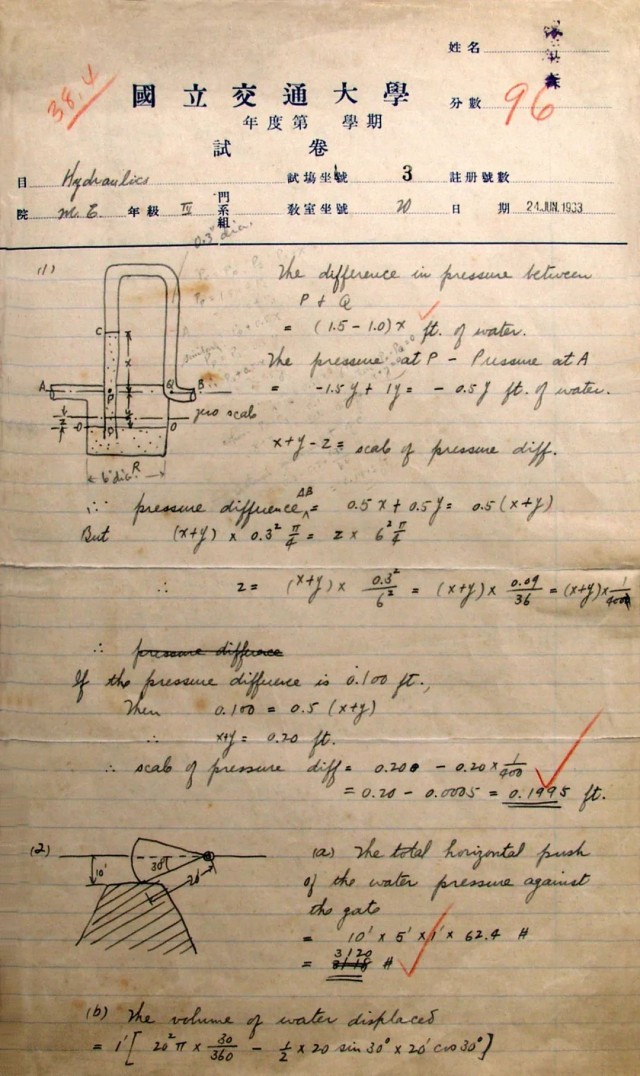 姓名
38.4
國立交通大學
分數 96
年度第 學期
試卷
目 Hydraulics 試場坐號 3 註册號數
院 M.E. 年級 IV 門系組 教室坐號 20 日期 24.JUN.1933
0.3" dia.
(1) The difference in pressure between
P & Q
= (1.5 - 1.0) x ft. of water.
The pressure at P - Pressure at A
= -1.5 y + 1y = -0.5 y ft. of water.
C
x
A P Q B
y
zero scale
z
O O
R
6" dia.
x+y-z = scale of pressure diff.
∴ pressure difference AB = 0.5 x + 0.5 y = 0.5 (x+y)
But (x+y) × 0.3² π/4 = z × 6² π/4
∴ z = (x+y) × 0.3²/6² = (x+y) × 0.09/36 = (x+y) × 1/400
∴ pressure difference
If the pressure difference is 0.100 ft.,
Then 0.100 = 0.5 (x+y)
∴ x+y = 0.20 ft.
∴ scale of pressure diff = 0.200 - 0.20 × 1/400
= 0.20 - 0.0005 = 0.1995 ft.
(2) 10' 30° 20'
(a) The total horizontal push
of the water pressure against
the gate
= 10' × 5' × 1' × 62.4 #
= 3120 #
(b) The volume of water displaced
= 1' [ 20² π × 30/360 - 1/2 × 20 sin 30° × 20' cos 30° ]